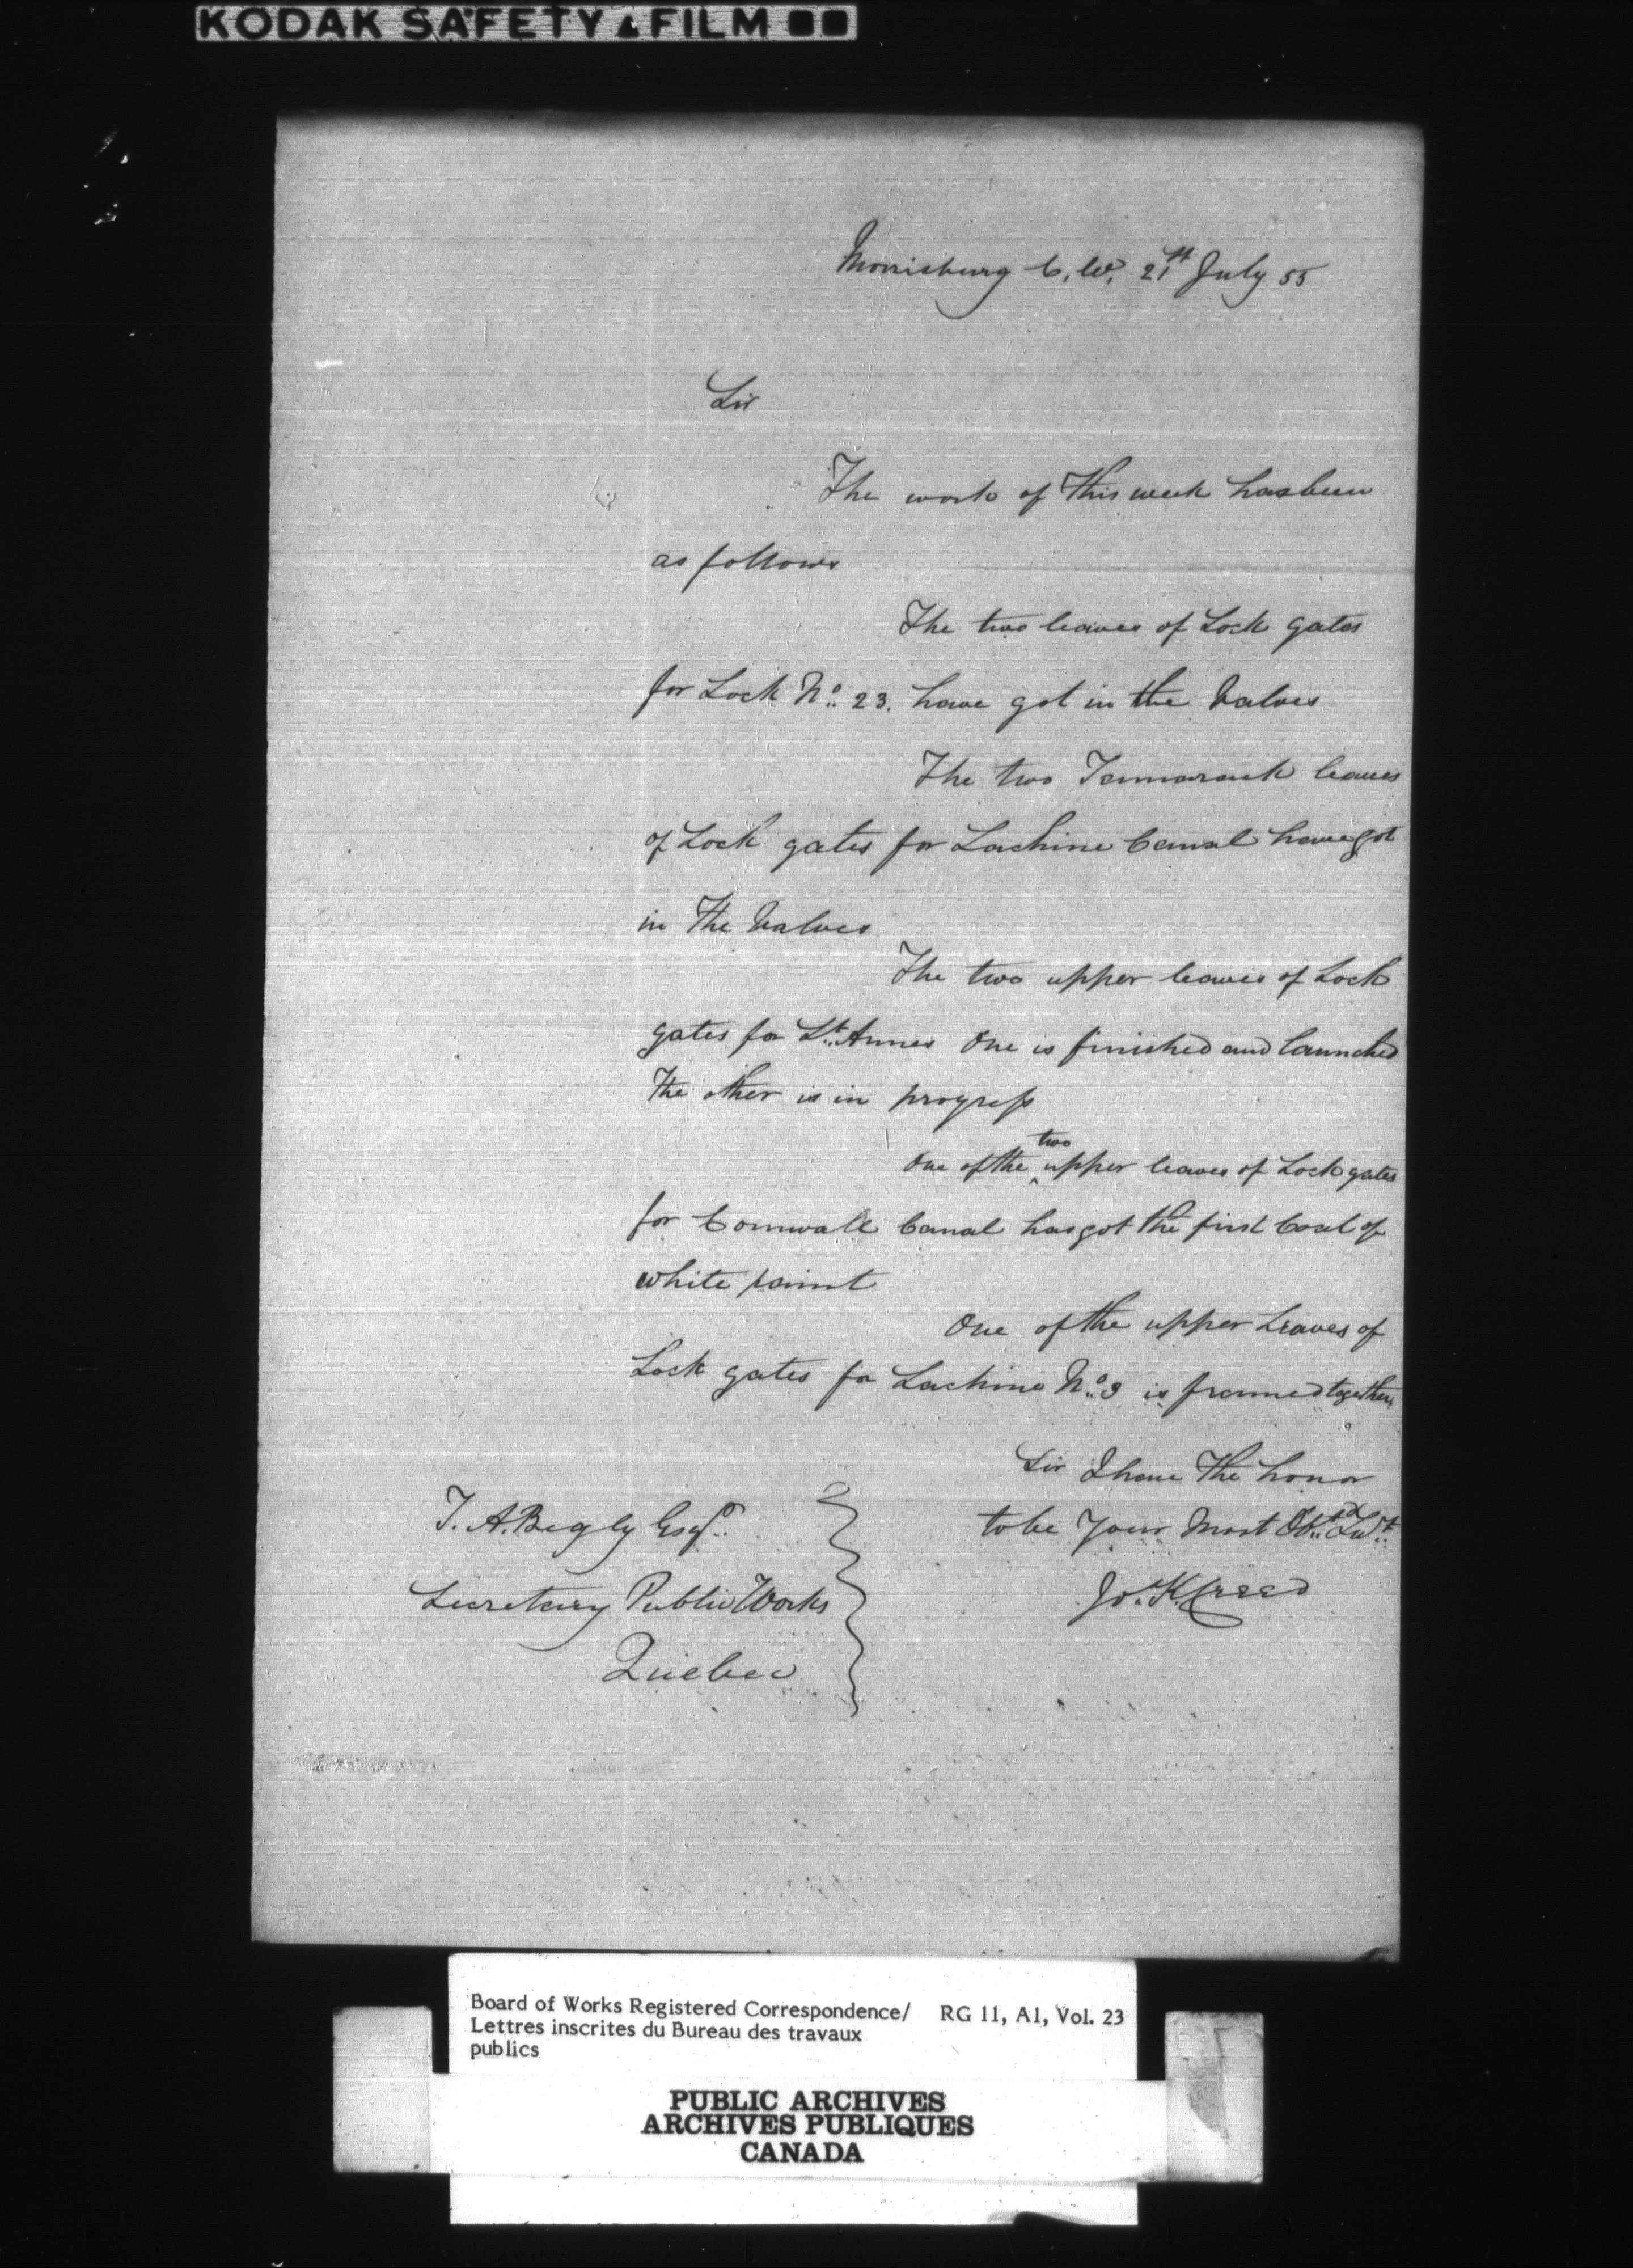 KODAK SAFETY FILM
Morrisburg C. W. 21st July 55
Sir
The work of this week has been
as follows
The two leaves of Lock gates
for Lock No. 23. have got in the Valves
The two Tammarack leaves
of Lock gates for Lachine Canal have got
in The Valves
The two upper leaves of Lock
gates for St. Annes One is finished and launched
The other is in progress
One of the ^two upper leaves of Lock gates
for Cornwall Canal has got the first Coat of
white paint
One of the upper Leaves of
Lock gates for Lachine No. 3 is framed together
Sir I have The honor
to be Your Most Obt. Svt.
T. A. Begly Esqr.
Secretary Public Works
Quebec
Board of Works Registered Correspondence/ RG 11, A1, Vol. 23
Lettres inscrites du Bureau des travaux
publics
PUBLIC ARCHIVES
ARCHIVES PUBLIQUES
CANADA